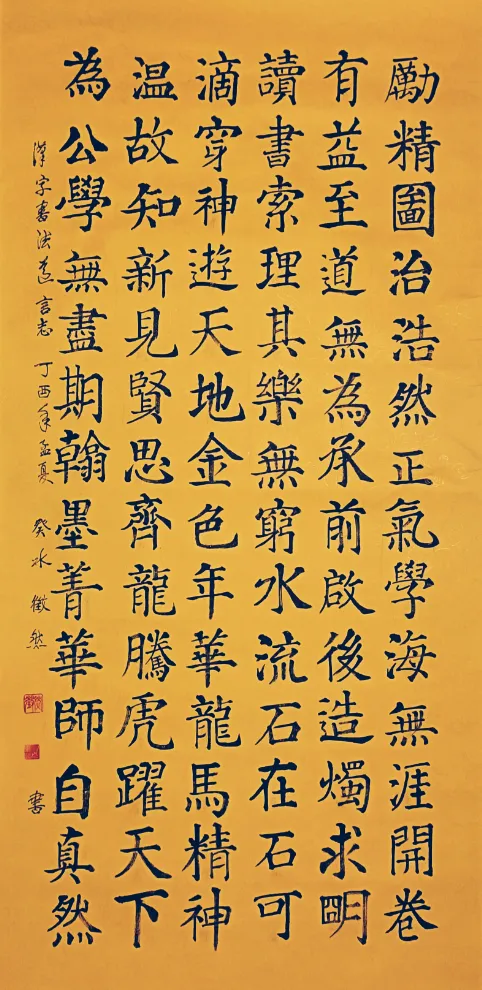 勵精圖治浩然正氣學海無涯開卷
有益至道無為承前啟後造燭求明
讀書索理其樂無窮水流石在石可
滴穿神遊天地金色年華龍馬精神
温故知新見賢思齊龍騰虎躍天下
為公學無盡期翰墨菁華師自真然
漢字書法言志 丁酉年孟夏 癸水 然 書